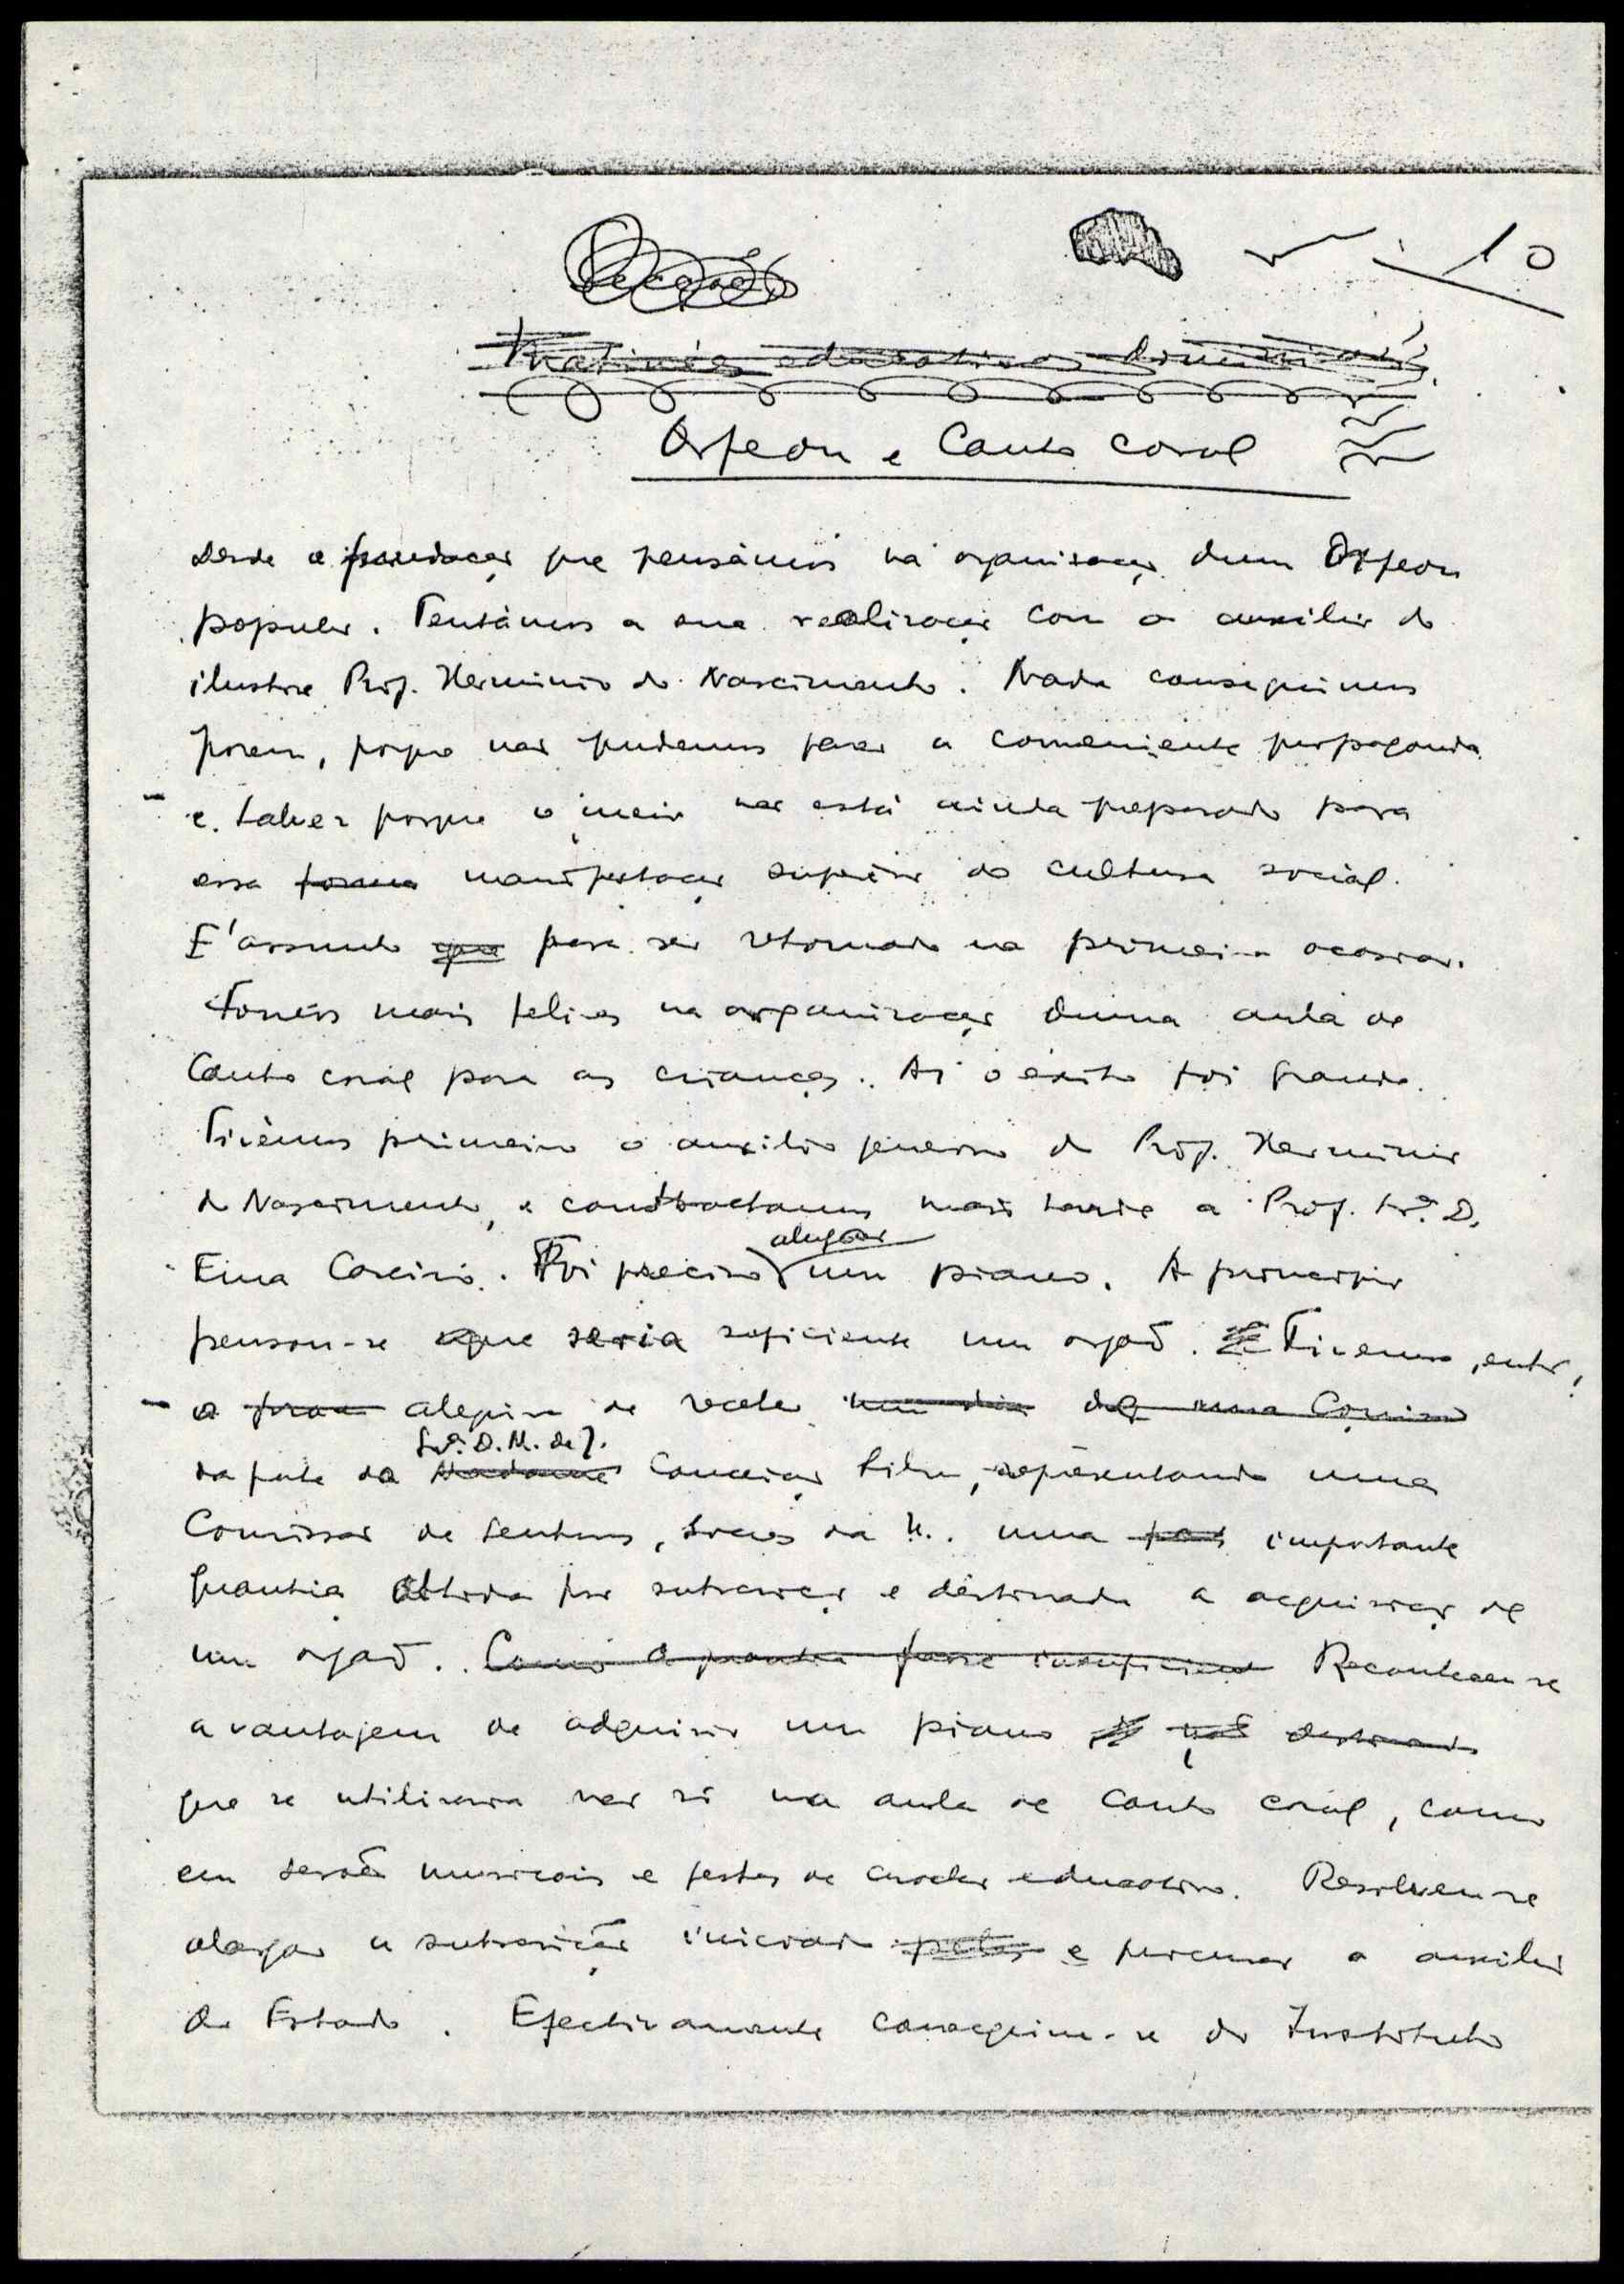 10
Matinées educativas dominicais
Orfeon e Canto coral
Desde a fundação que pensámos na organisação dum Orfeon
popular. Tentámos a sua realização com o auxilio do
ilustre Prof. Herminio do Nascimento. Nada conseguimos
porem, porque não pudemos fazer a conveniente propaganda
e talvez porque o meio não está ainda preparado para
essa forma manifestação superior de cultura social.
E' assunto que para ser retomado na primeira ocasião.
Fomos mais felizes na organização duma aula de
Canto coral para as crianças. Aí o êxito foi grande.
Tivémos primeiro o auxilio generoso do Prof. Herminio
do Nascimento, e contractamos mais tarde a Prof. Sr.ª D.
Ema . Foi preciso alugar um piano. A principio
pensou-se que seria suficiente um orgão. Tivemos, entr,
a alegria de receber um dia de uma Comissão
Sr.ª D. M. de J.
da parte da Madame Conceição Silva, representando uma
Comissão de senhoras, socias da U.. uma importante
quantia obtida por subscrição e destinada a acquisição de
um orgão. Como a quantia fosse insuficiente Reconheceu-se
a vantajem de adquirir um piano não destinado
que se utilizaria não só na aula de Canto coral, como
em sessões musicais e festas de caracter educativo. Resolveu-se
alargar a subscrição iniciada pelas e procurar o auxilio
do Estado. Efectivamente conseguiu-se do Instituto